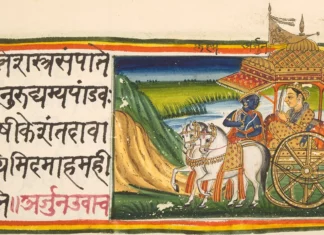 तेशस्त्रसंपाते
नुरुद्यम्यपांडवः
षीकेशंतदावा
यमिदमाहमही
ते॥अर्जुनउवाच